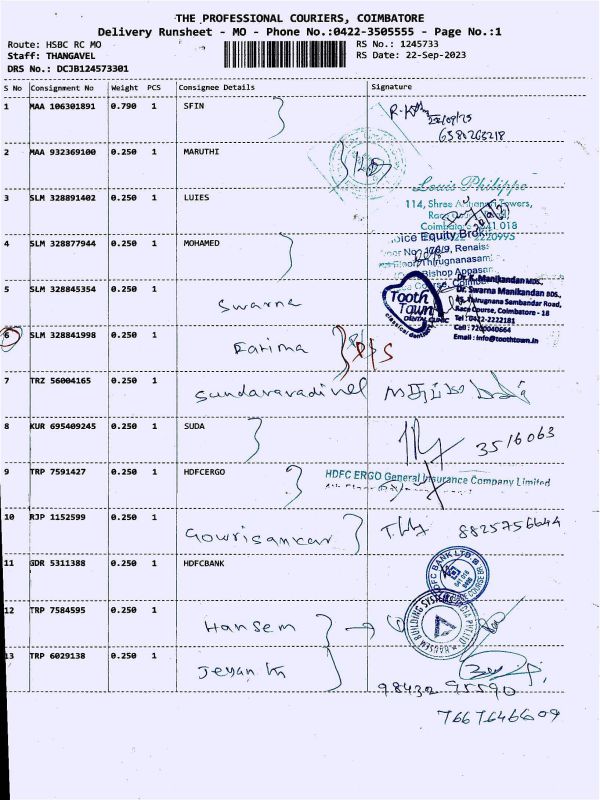 THE PROFESSIONAL COURIERS, COIMBATORE
Delivery Runsheet - MO - Phone No.:0422-3505555 - Page No.:1
Route: HSBC RC MO
RS No.: 1245733
Staff: THANGAVEL
RS Date: 22-Sep-2023
DRS No.: DCJB124573301
S No Consignment No Weight PCS Consignee Details Signature
1 MAA 106301891 0.790 1 SFIN
2 MAA 932369100 0.250 1 MARUTHI
3 SLM 328891402 0.250 1 LUIES
Louis Philippe
4 SLM 328877944 0.250 1 MOHAMED
5 SLM 328845354 0.250 1 Swarna
Tooth Town
DENTAL CLINIC
Dr. K. Manikandan MDS.,
Dr. Swarna Manikandan BDS.,
Thirugnana Sambandar Road,
Race Course, Coimbatore - 18
Tel : 0422-2222181
Cell : 7200040664
Email : info@toothtown.in
6 SLM 328841998 0.250 1 Fatima
7 TRZ 56004165 0.250 1 Sundaravadivel
8 KUR 695409245 0.250 1 SUDA
3516063
9 TRP 7591427 0.250 1 HDFCERGO
HDFC ERGO General Insurance Company Limited
10 RJP 1152599 0.250 1 Gowrisankar
8825756644
11 GDR 5311388 0.250 1 HDFCBANK
12 TRP 7584595 0.250 1 Hansem
13 TRP 6029138 0.250 1 Jeyan
98432 95590
7667646609